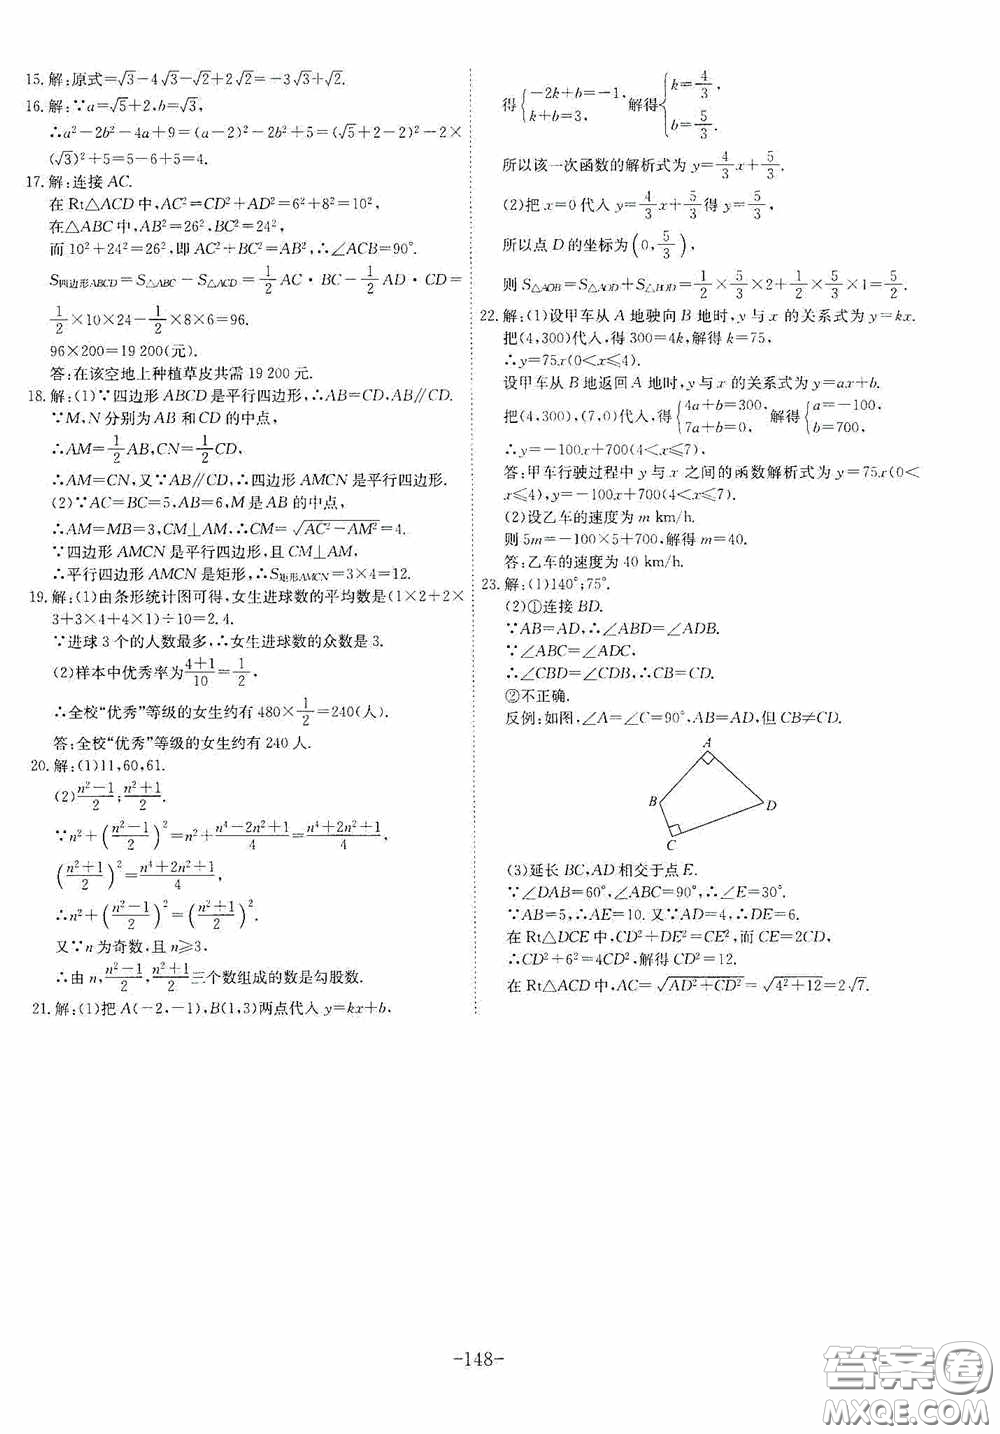 15. 解:原式=√3-4√3-√2+2√2=-3√3+√2.
16. 解:∵a=√5+2,b=√3,
∴a²-2b²-4a+9=(a-2)²-2b²+5=(√5+2-2)²-2×
(√3)²+5=5-6+5=4.
17. 解:连接 AC.
在 Rt△ACD 中,AC²=CD²+AD²=6²+8²=10²,
在△ABC 中,AB²=26²,BC²=24²,
而 10²+24²=26²,即 AC²+BC²=AB²,∴∠ACB=90°.
S四边形ABCD=S△ABC-S△ACD=1/2 AC·BC-1/2 AD·CD=
1/2×10×24-1/2×8×6=96.
96×200=19 200(元).
答:在该空地上种植草皮共需 19 200 元.
18. 解:(1)∵四边形 ABCD 是平行四边形,∴AB=CD,AB∥CD.
∵M,N 分别为 AB 和 CD 的中点,
∴AM=1/2 AB,CN=1/2 CD,
∴AM=CN,又∵AB∥CD,∴四边形 AMCN 是平行四边形.
(2)∵AC=BC=5,AB=6,M 是 AB 的中点,
∴AM=MB=3,CM⊥AM,∴CM=√(AC²-AM²)=4.
∵四边形 AMCN 是平行四边形,且 CM⊥AM,
∴平行四边形 AMCN 是矩形,∴S矩形AMCN=3×4=12.
19. 解:(1)由条形统计图可得,女生进球数的平均数是(1×2+2×
3+3×4+4×1)÷10=2.4.
∵进球 3 个的人数最多,∴女生进球数的众数是 3.
(2)样本中优秀率为(4+1)/10=1/2,
∴全校“优秀”等级的女生约有 480×1/2=240(人).
答:全校“优秀”等级的女生约有 240 人.
20. 解:(1)11,60,61.
(2)(n²-1)/2;(n²+1)/2.
∵n²+((n²-1)/2)²=n²+(n⁴-2n²+1)/4=(n⁴+2n²+1)/4,
((n²+1)/2)²=(n⁴+2n²+1)/4,
∴n²+((n²-1)/2)²=((n²+1)/2)².
又∵n 为奇数,且 n≥3,
∴由 n,(n²-1)/2,(n²+1)/2三个数组成的数是勾股数.
21. 解:(1)把 A(-2,-1),B(1,3)两点代入 y=kx+b,
得{-2k+b=-1, k+b=3, 解得{k=4/3, b=5/3.
所以该一次函数的解析式为 y=4/3 x+5/3.
(2)把 x=0 代入 y=4/3 x+5/3得 y=5/3,
所以点 D 的坐标为(0,5/3),
则 S△AOB=S△AOD+S△BOD=1/2×5/3×2+1/2×5/3×1=5/2.
22. 解:(1)设甲车从 A 地驶向 B 地时,y 与 x 的关系式为 y=kx.
把(4,300)代入,得 300=4k,解得 k=75,
∴y=75x(0<x≤4).
设甲车从 B 地返回 A 地时,y 与 x 的关系式为 y=ax+b.
把(4,300),(7,0)代入,得{4a+b=300, 7a+b=0, 解得{a=-100, b=700,
∴y=-100x+700(4<x≤7),
答:甲车行驶过程中 y 与 x 之间的函数解析式为 y=75x(0<
x≤4),y=-100x+700(4<x≤7).
(2)设乙车的速度为 m km/h.
则 5m=-100×5+700,解得 m=40.
答:乙车的速度为 40 km/h.
23. 解:(1)140°;75°.
(2)①连接 BD.
∵AB=AD,∴∠ABD=∠ADB.
∵∠ABC=∠ADC,
∴∠CBD=∠CDB,∴CB=CD.
②不正确.
反例:如图,∠A=∠C=90°,AB=AD,但 CB≠CD.
A
B
D
C
(3)延长 BC,AD 相交于点 E.
∵∠DAB=60°,∠ABC=90°,∴∠E=30°.
∵AB=5,∴AE=10. 又∵AD=4,∴DE=6.
在 Rt△DCE 中,CD²+DE²=CE²,而 CE=2CD,
∴CD²+6²=4CD²,解得 CD²=12.
在 Rt△ACD 中,AC=√(AD²+CD²)=√(4²+12)=2√7.
-148-
答案圈
MXQE.COM